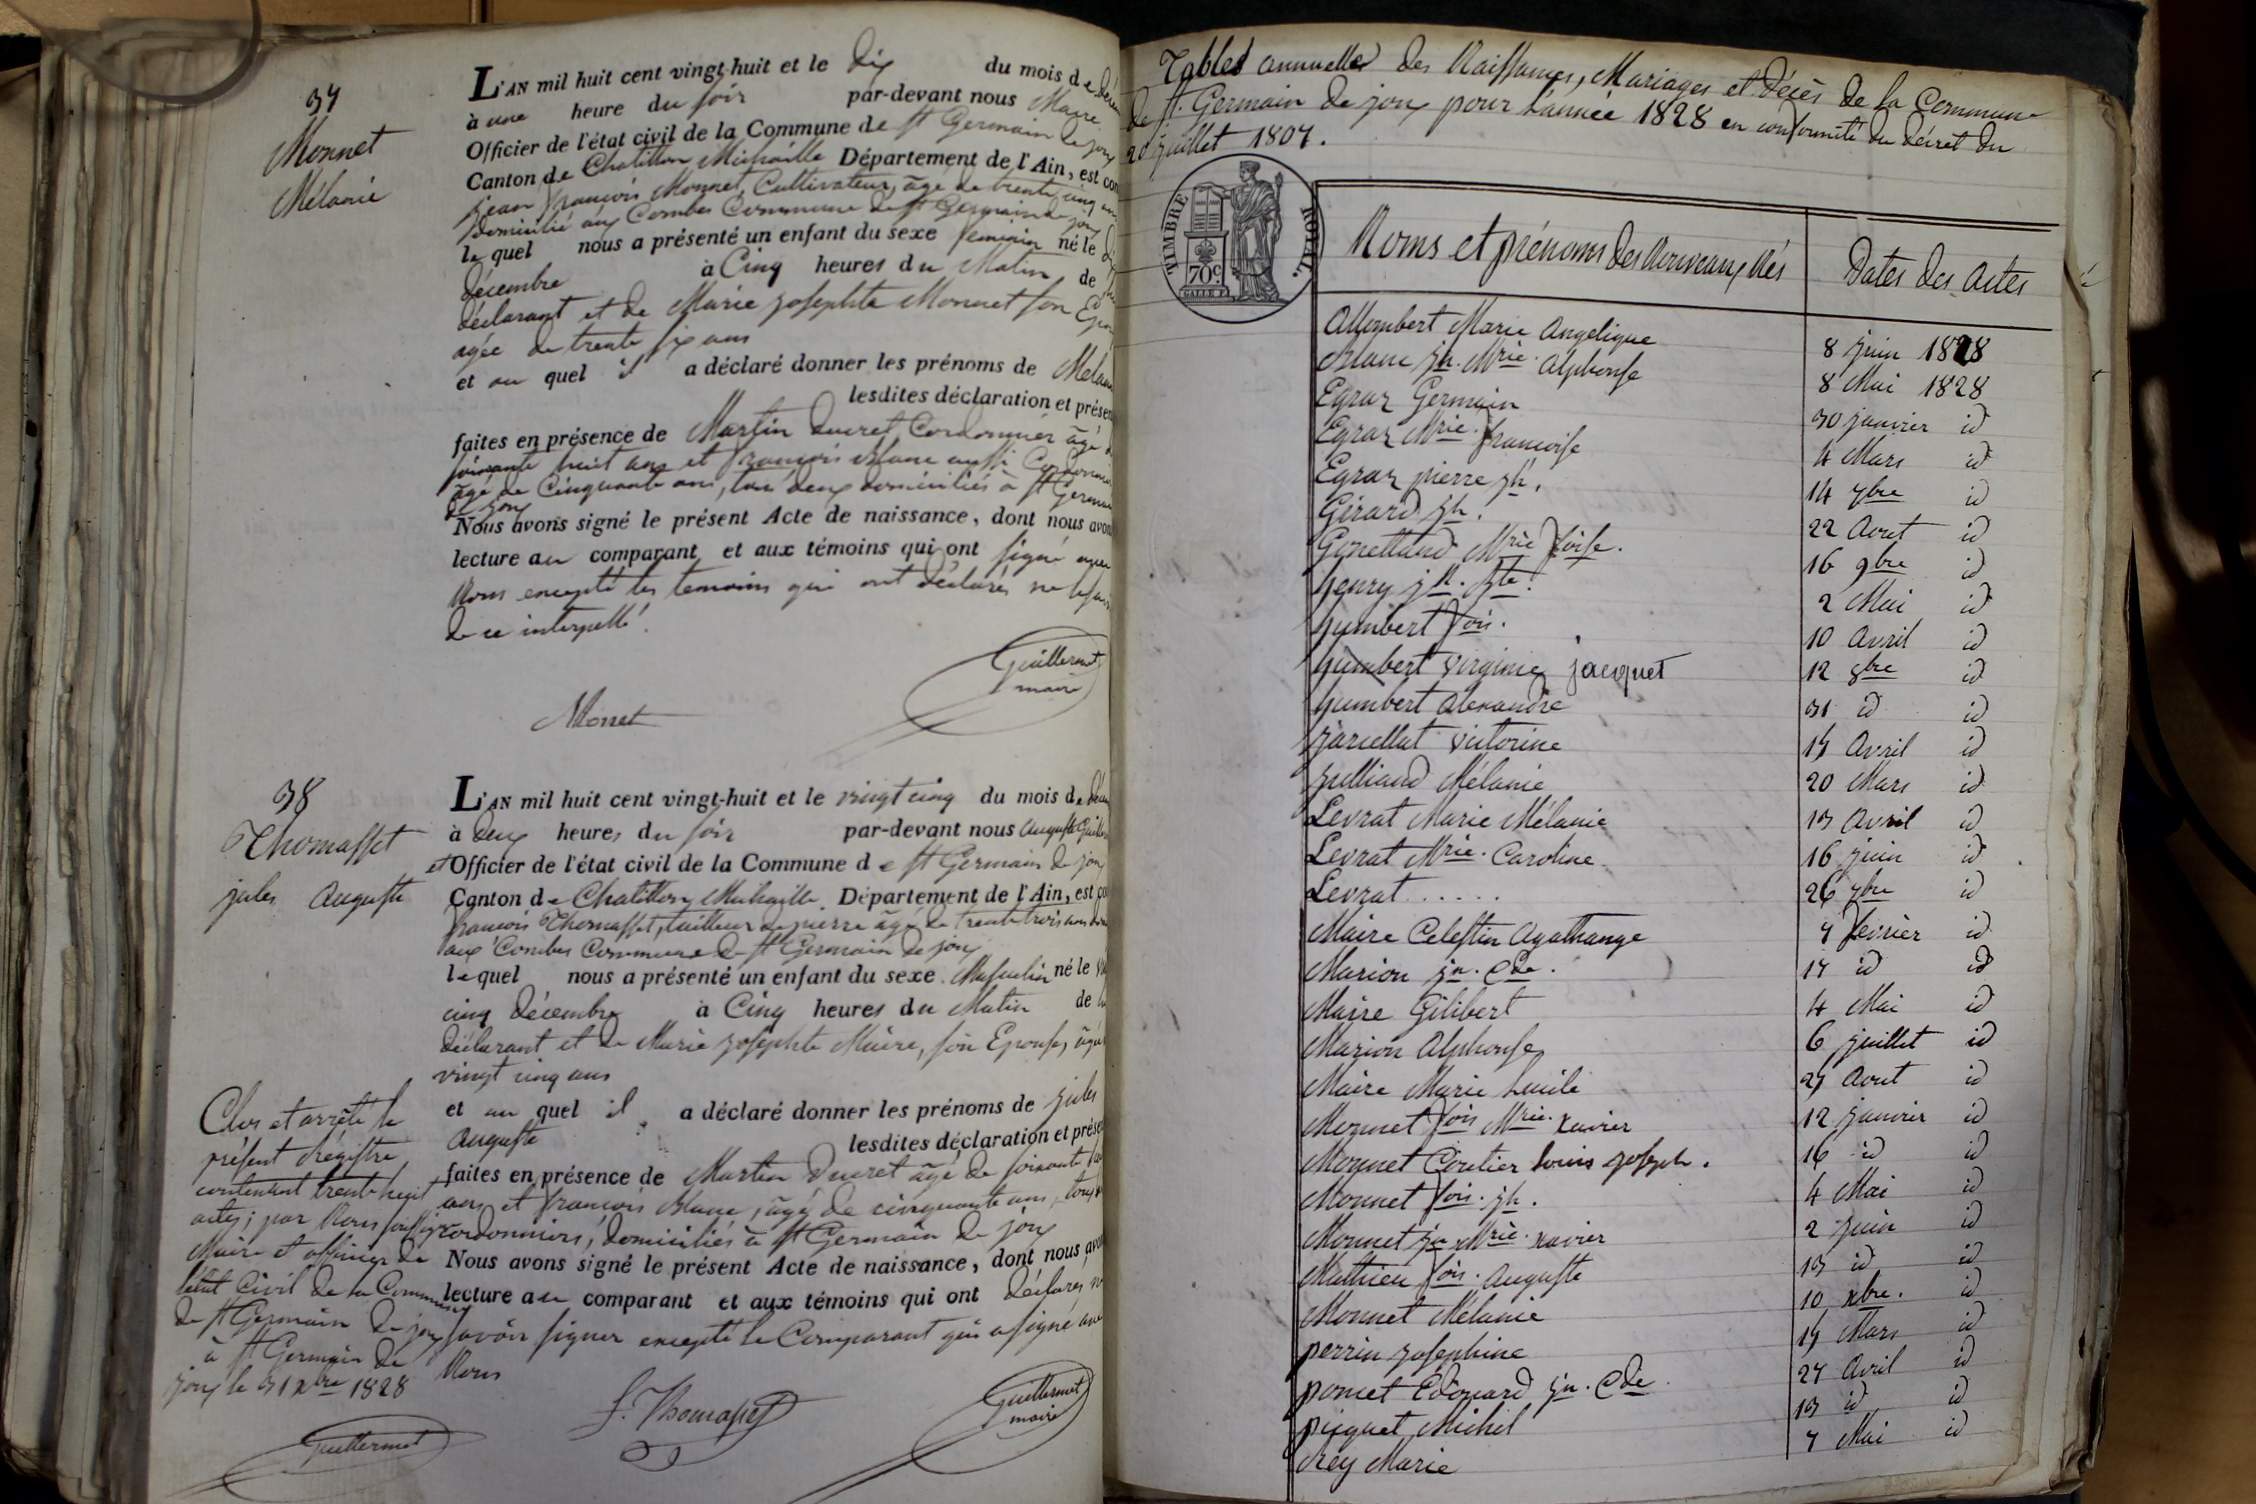 37
Monnet
Mélanie
L'AN mil huit cent vingt-huit et le dix du mois de
à une heure du soir par-devant nous Maire
Officier de l'état civil de la Commune de St Germain de joux
Canton de Chatillon Michaille Département de l'Ain, est
jean françois Monnet, Cultivateur, âgé de trente cinq ans
domicilié aux Combes Commune de St Germain de joux
lequel nous a présenté un enfant du sexe feminin né le
décembre à Cinq heures du Matin de
déclarant et de Marie josephte Monnet son
agée de trente six ans
et auquel il a déclaré donner les prénoms de
lesdites déclaration et
faites en présence de Martin Ducret Cordonnier âgé
soixante huit ans et françois Blanc aussi
âgé de Cinquante ans, tous deux domiciliés à St
de joux
Nous avons signé le présent Acte de naissance, dont nous
lecture au comparant et aux témoins qui ont signé avec
Nous excepté les témoins qui ont déclarés ne
de ce interpellé.
Guillermet
maire
Monet
38
Thomasset
jules Auguste
L'AN mil huit cent vingt-huit et le vingt cinq du mois de
à deux heures du soir par-devant nous Auguste
et Officier de l'état civil de la Commune de St Germain de joux
Canton de Chatillon Michaille Département de l'Ain, est
françois Thomasset, tailleur de pierre âgé de trente trois ans
aux Combes Commune de St Germain de joux
lequel nous a présenté un enfant du sexe Masculin né le
cinq décembre à Cinq heures du Matin de
déclarant et de Marie josephte Maire, son Epouse, âgée
vingt cinq ans
et auquel il a déclaré donner les prénoms de jules
Auguste lesdites déclaration et
faites en présence de Martin Ducret âgé de soixante
ans et françois Blanc, âgé de cinquante ans, tous
cordonniers, domiciliés à St Germain de joux
Nous avons signé le présent Acte de naissance, dont nous
lecture au comparant et aux témoins qui ont déclarés
savoir signer excepté le Comparant qui a signé avec
Nous
Clos et arrêté le
présent régistre
contenant trente huit
actes; par Nous
Maire et officier de
létat Civil de la Commune
de St Germain de joux
à St Germain de
joux le 31 xbre 1828
Guillermet
f. Thomasset
Guillermet
maire
Tables annuelles des Naissances, Mariages et décès de la Commune
de St. Germain de joux pour l'année 1828 en conformité du décret du
20 juillet 1807.
TIMBRE ROYAL.
70c.
Noms et prénoms des Nouveaux Nés Dates des Actes
Allombert Marie Angelique 8 juin 1828
Blanc jn. Mrie. Alphonse 8 Mai 1828
Egraz Germain 30 janvier id
Egraz Mrie. françoise 4 Mars id
Egraz pierre jh. 14 7bre id
Girard jh. 22 Aout id
Mrie foise. 16 9bre id
henry 2 Mai id
humbert fois. 10 Avril id
humbert virginie jacquet 12 8bre id
humbert Alexandre 31 id id
victorine 17 Avril id
julliand Mélanie 20 Mars id
Levrat Marie Mélanie 13 Avril id
Levrat Mrie. Caroline 16 juin id
Levrat ...... 26 7bre id
Maire Celestin Agathange 7 fevrier id
Marion jn. Cde. 17 id id
Maire Gilibert 4 Mai id
Marion Alphonse 6 juillet id
Maire Marie Lucile 27 Aout id
Monnet fois Mrie. xavier 12 janvier id
Monnet Coutier Louis joseph. 16 id id
Monnet fois. jh. 4 Mai id
Monnet jn Mrie. xavier 2 juin id
Mathieu fois. Auguste 13 id id
Monnet Mélanie 10 xbre. id
perrin josephine 17 Mars id
poncet Edouard jn. Cde 27 Avril id
picquet Michel 13 id id
Rey Marie 7 Mai id